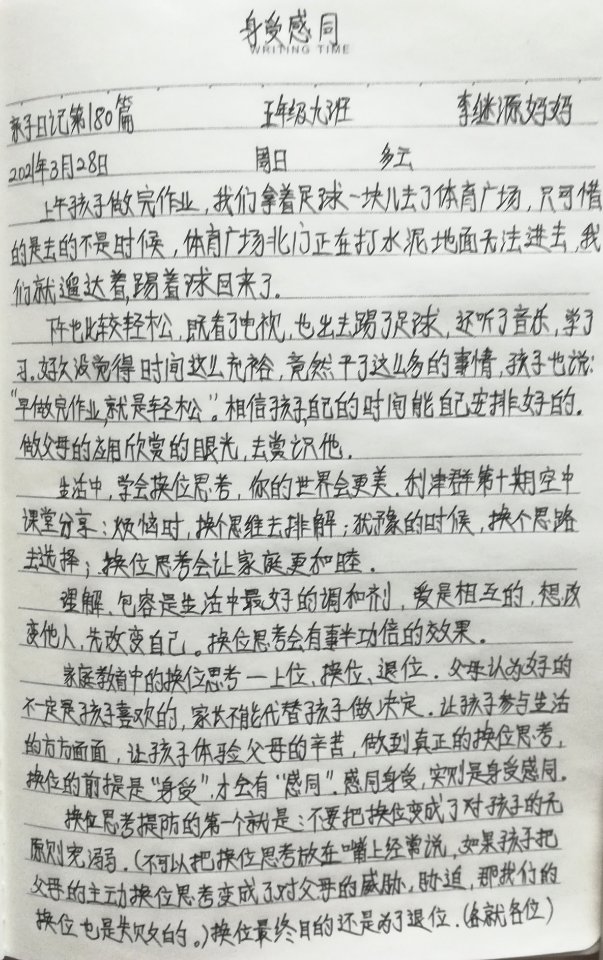 身受感同
WRITING TIME
亲子日记第180篇 五年级九班 李继源妈妈
2021年3月28日 周日 多云
上午孩子做完作业，我们拿着足球一块儿去了体育广场，只可惜
的是去的不是时候，体育广场北门正在打水泥地面无法进去，我
们就遛达着，踢着球回来了。
下午也比较轻松，既看了电视，也出去踢了足球，还听了音乐，学了
习。好久没觉得时间这么充裕，竟然干了这么多的事情，孩子也说：
“早做完作业，就是轻松”。相信孩子，自己的时间能自己安排好的。
做父母的应用欣赏的眼光，去赏识他。
生活中，学会换位思考，你的世界会更美．利津群第十期空中
课堂分享：烦恼时，换个思维去排解；犹豫的时候，换个思路
去选择；换位思考会让家庭更和睦．
理解、包容是生活中最好的调和剂，爱是相互的，想改
变他人，先改变自己。换位思考会有事半功倍的效果。
家庭教育中的换位思考一上位、换位、退位．父母认为好的
不一定是孩子喜欢的，家长不能代替孩子做决定．让孩子参与生活
的方方面面，让孩子体验父母的辛苦，做到真正的换位思考，
换位的前提是“身受”，才会有“感同”．感同身受，实则是身受感同．
换位思考提防的第一个就是：不要把换位变成了对孩子的无
原则宽溺．（不可以把换位思考放在嘴上经常说，如果孩子把
父母的主动换位思考变成了对父母的威胁，胁迫，那我们的
换位也是失败的。）换位最终目的还是为了退位．（各就各位）